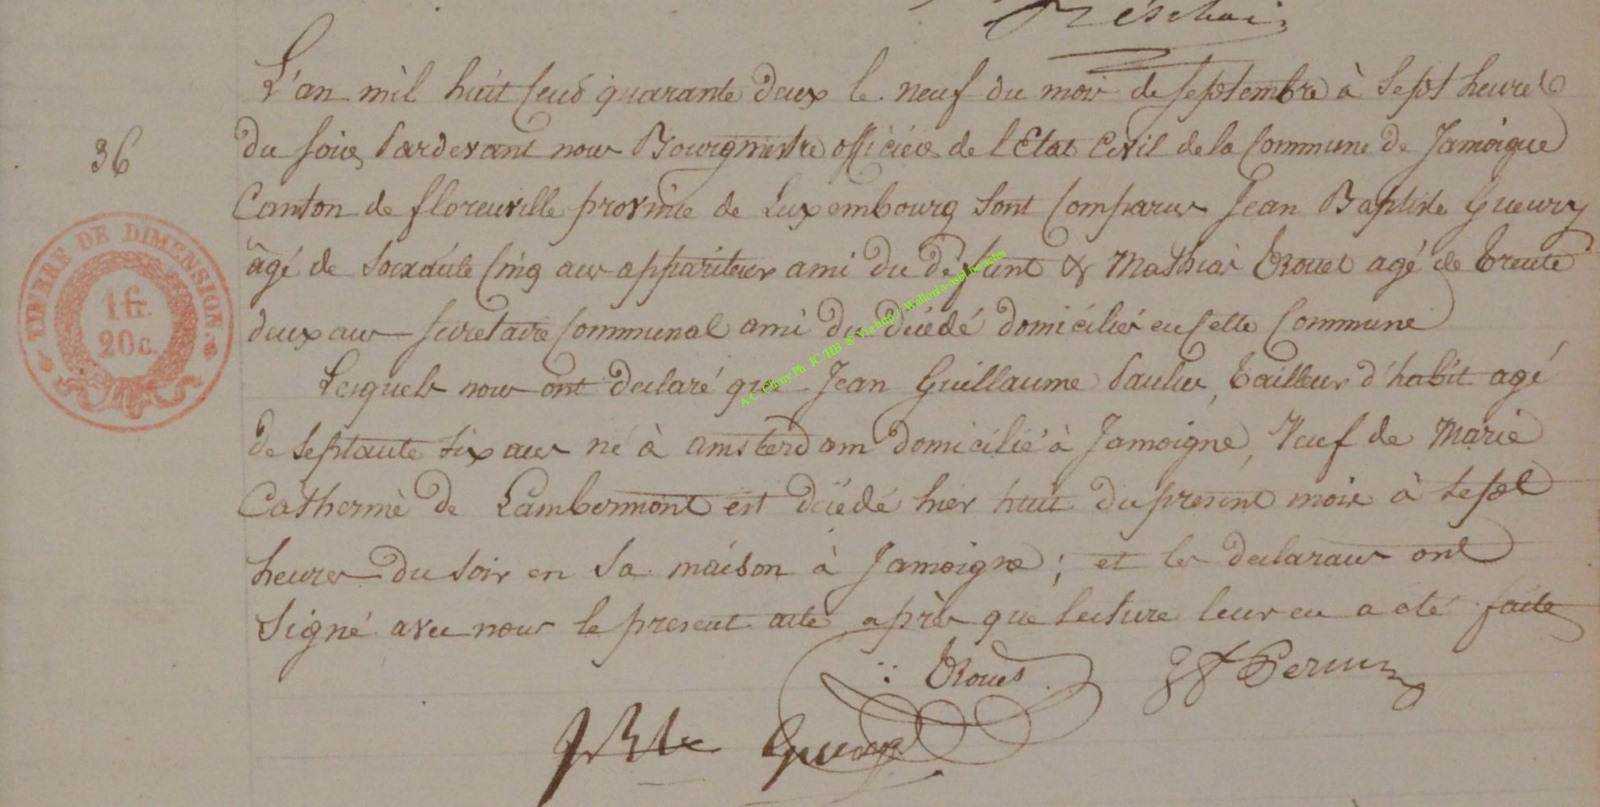 36
L'an mil huit cent quarante deux le neuf du mois de septembre à sept heures
du soir, Pardevant nous Bourgmestre officier de l'Etat Civil de la Commune de Jamoigne
Canton de florenville province de Luxembourg sont Comparus Jean Baptiste Gueury
âgé de soixante Cinq ans appariteur ami du défunt & Mathias agé de trente
deux ans secretaire Communal ami du décédé domiciliés en cette Commune
Lesquels nous ont declaré que Jean Guillaume Paulus, tailleur d'habit agé
de septante six ans né à amsterdam domicilié à Jamoigne, Veuf de Marie
Catherine de Lambermont est décédé hier huit du present mois à sept
heures du soir en sa maison à Jamoigne ; et les declarans ont
signé avec nous le present acte après que lecture leur en a été faite
Gueury
TIMBRE DE DIMENSION.
1 fr.
20 c.